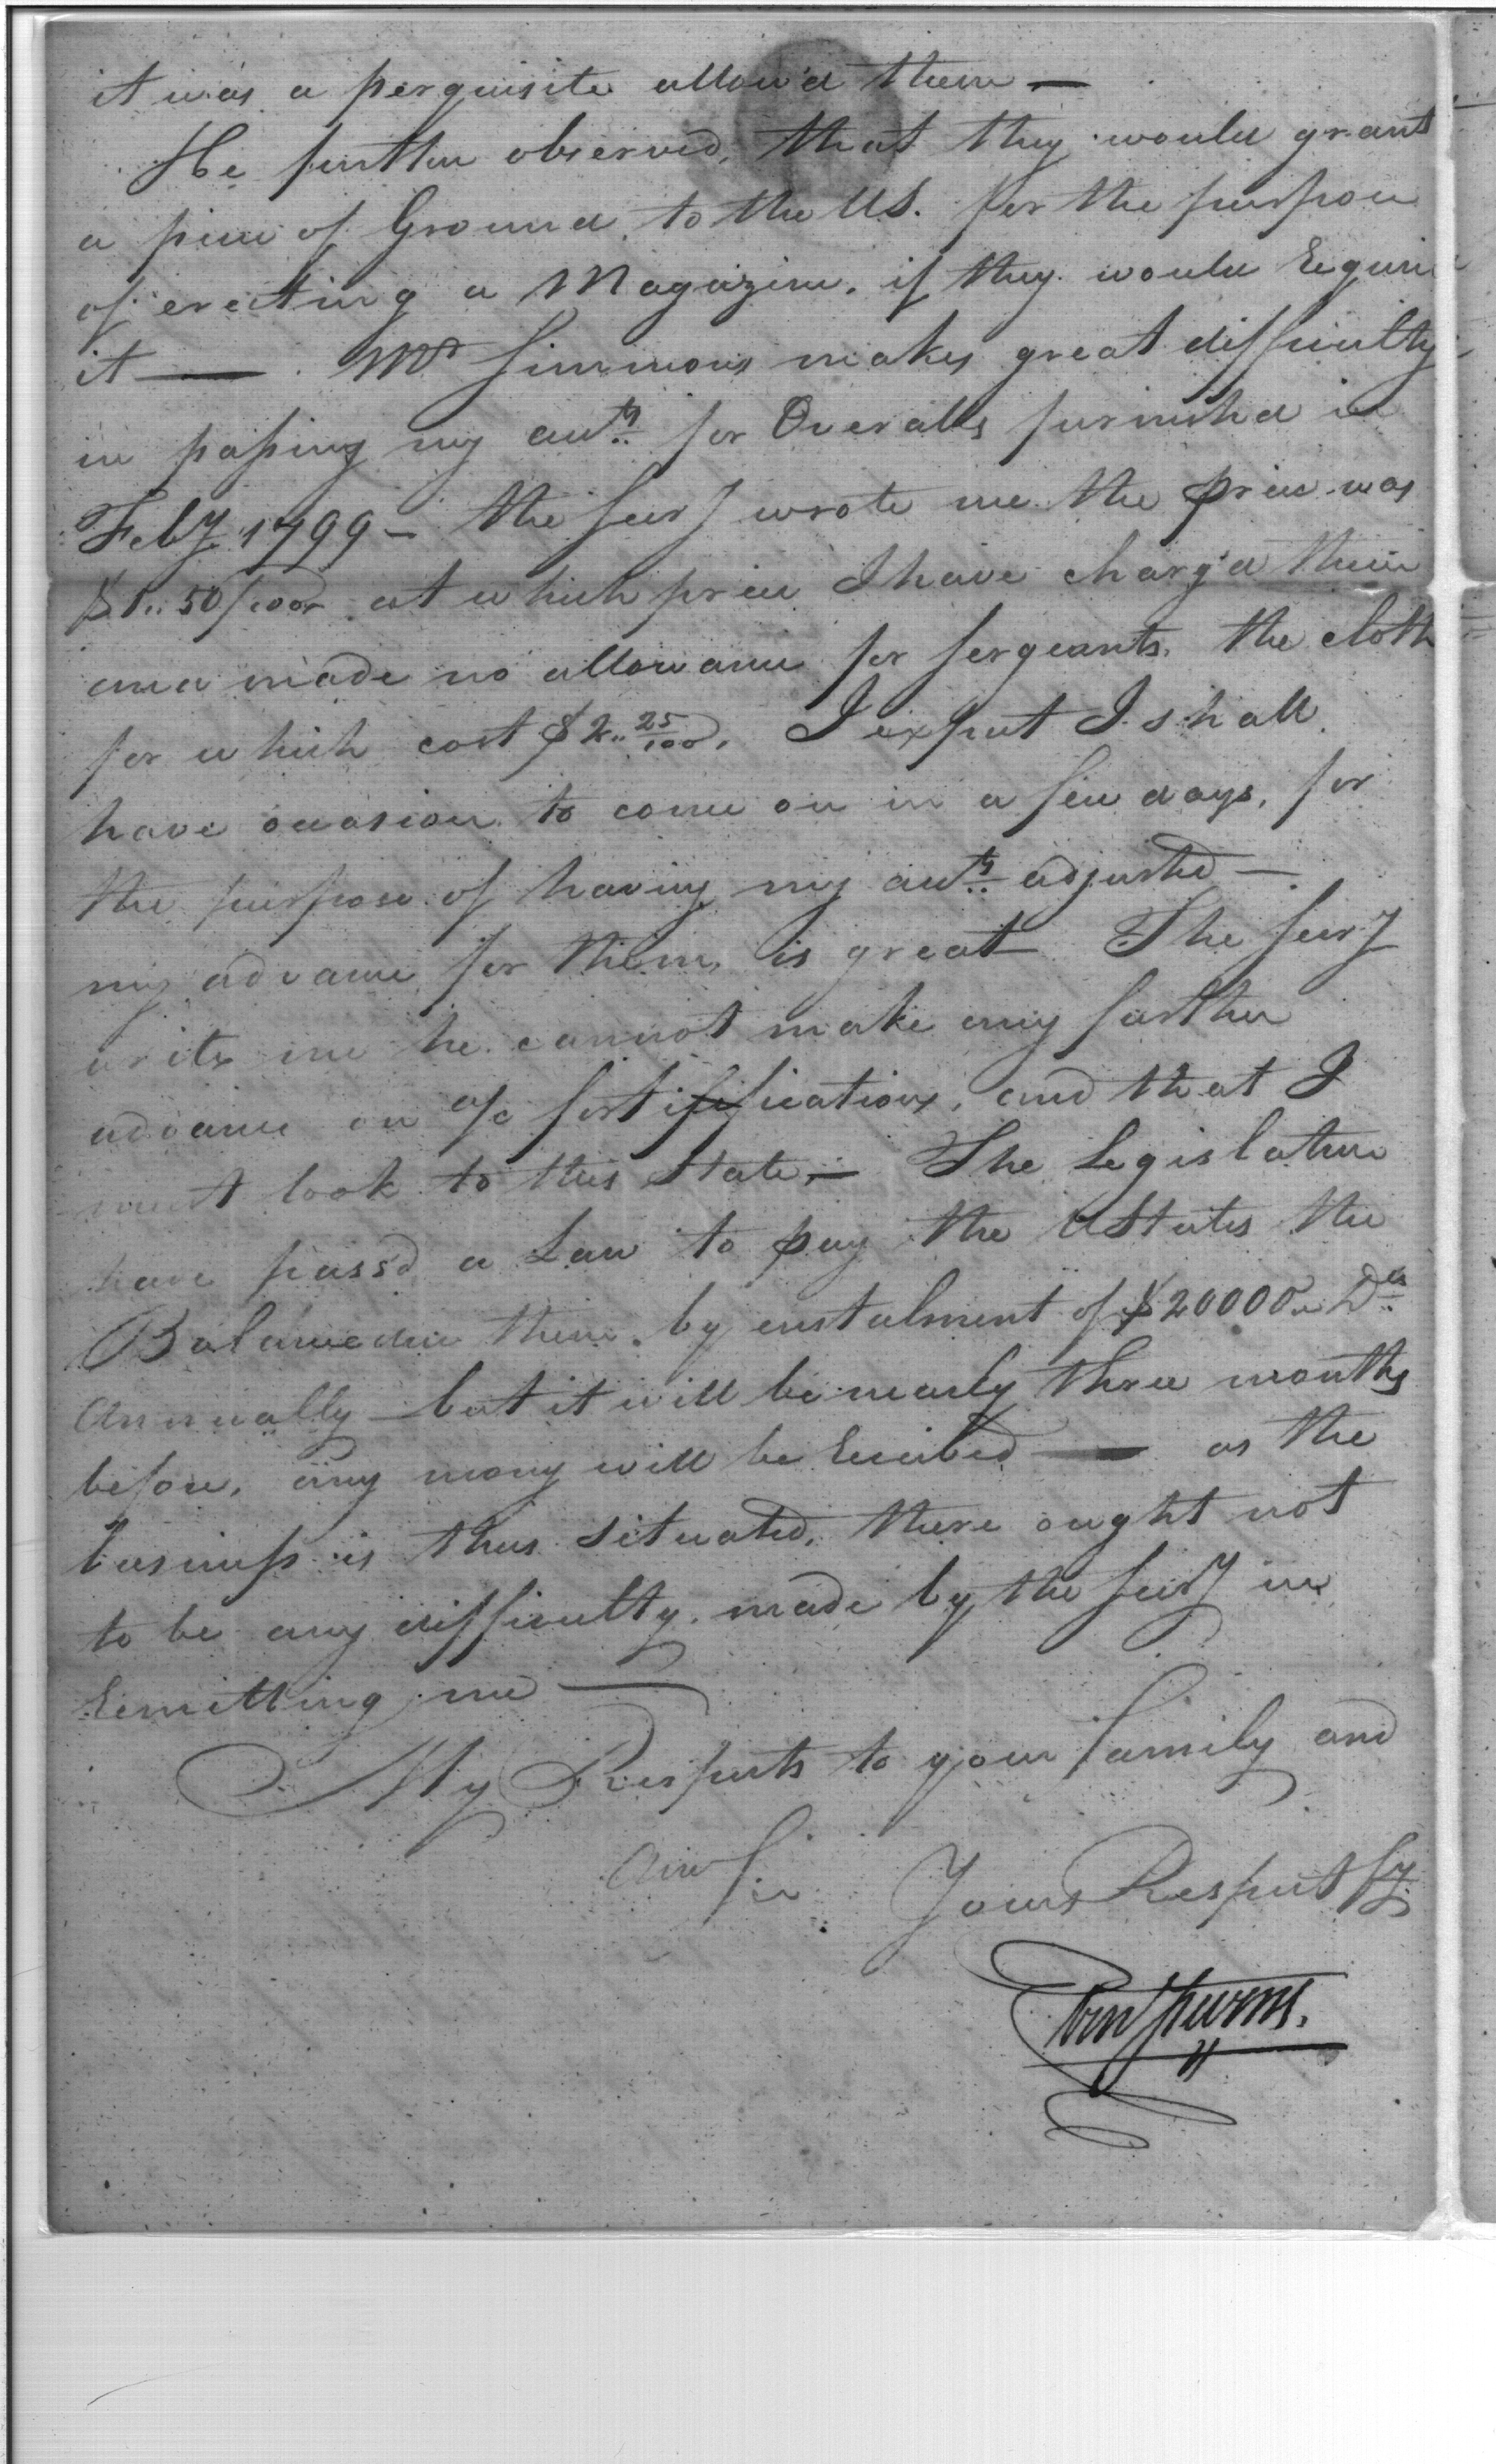 it was a perquisite allow'd them —
He further observed, that they would grant
a piece of Ground, to the US. for the purpose
of erecting a Magazine, if they would Require
it — . Mr Simmons makes great difficulty
in passing my auts for Overalls furnished in
Feby 1799 – the Secry wrote me the price was
$1..50/100 at which price I have charg'd them
and made no allowance for Sergeants, the cloth
for which cost $2..25/100. I expect I shall
have occasion to come on in a few days, for
the purpose of having my auts adjusted —
my advance for them, is great The Secry
writes me he cannot make any further
advance on a/c fortifications, and that I
must look to this State — The Legislature
have passd a Law to pay the UStates the
Balance due them by enstalment of $20000.. Ds
Annually – but it will be nearly three months
before, any mony will be Received — as the
business is thus situated, there ought not
to be any difficulty, made by the Secry in
Remitting me —
My Respects to your family and
am Sir Yours Respectfy
Eben Stevens.